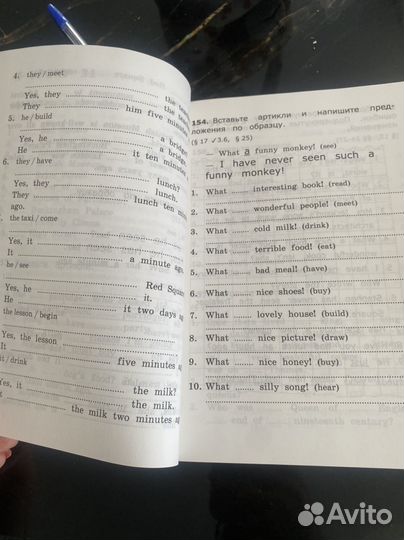 4. they / meet
Yes, they .......... the
They .......... him five minutes
5. he / build
Yes, he .......... a bridge
He .......... a bridge
it ten minutes
6. they / have
Yes, they .......... lunch?
They .......... lunch.
lunch ten
ago.
the taxi / come
Yes, it ..........
It .......... a minute ago.
he / see
Yes, he .......... Red Square
He .......... it.
it two days ago
the lesson / begin
Yes, the lesson ..........
It .......... five minutes
it / drink
Yes, it .......... the milk?
.......... the milk.
the milk two minutes
154. Вставьте артикли и напишите пред-
ложения по образцу.
(§ 17 ✓3.6, § 25)
— What a funny monkey! (see)
— I have never seen such a
funny monkey!
1. What ........ interesting book! (read)
2. What ........ wonderful people! (meet)
3. What ........ cold milk! (drink)
4. What ........ terrible food! (eat)
5. What ........ bad meal! (have)
6. What ........ nice shoes! (buy)
7. What ........ lovely house! (build)
8. What ........ nice picture! (draw)
9. What ........ nice honey! (buy)
10. What ........ silly song! (hear)
Avito